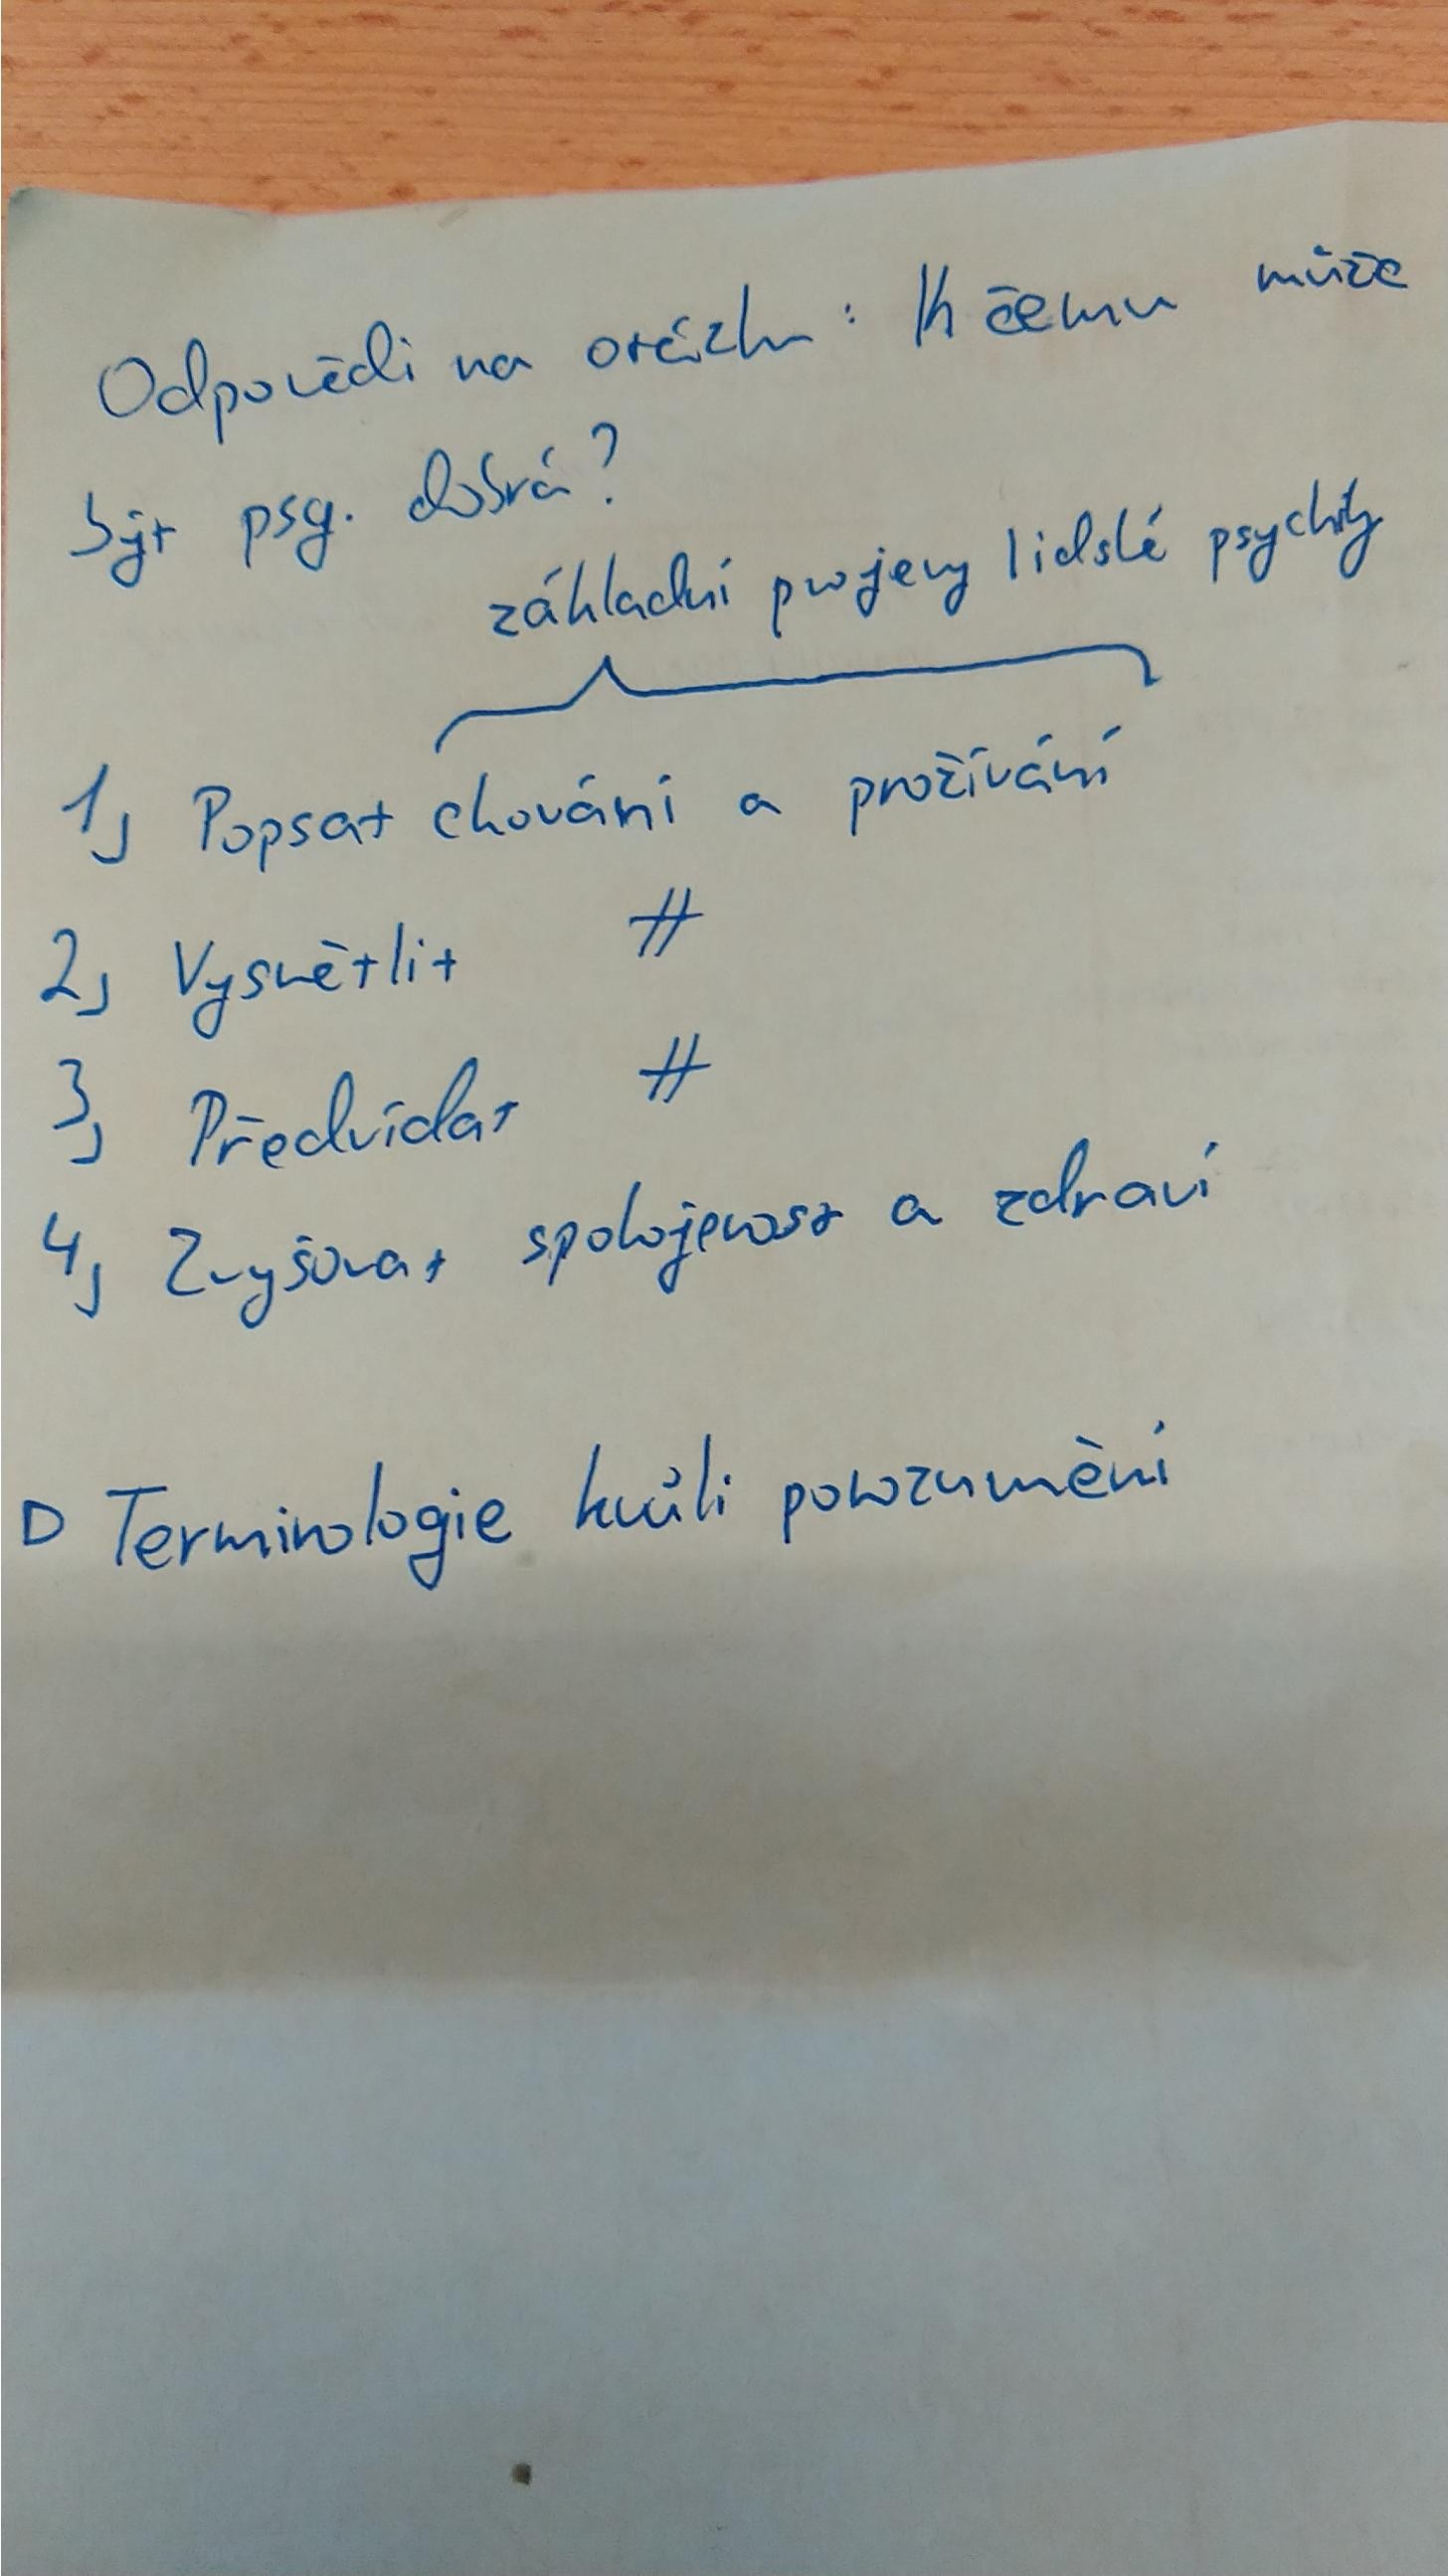 Odpovědi na otázku: K čemu může
být psy. dobrá?
základní projevy lidské psychiky
1, Popsat chování a prožívání
2, Vysvětlit //
3, Předvídat //
4, Zvyšovat spokojenost a zdraví
D Terminologie kvůli porozumění